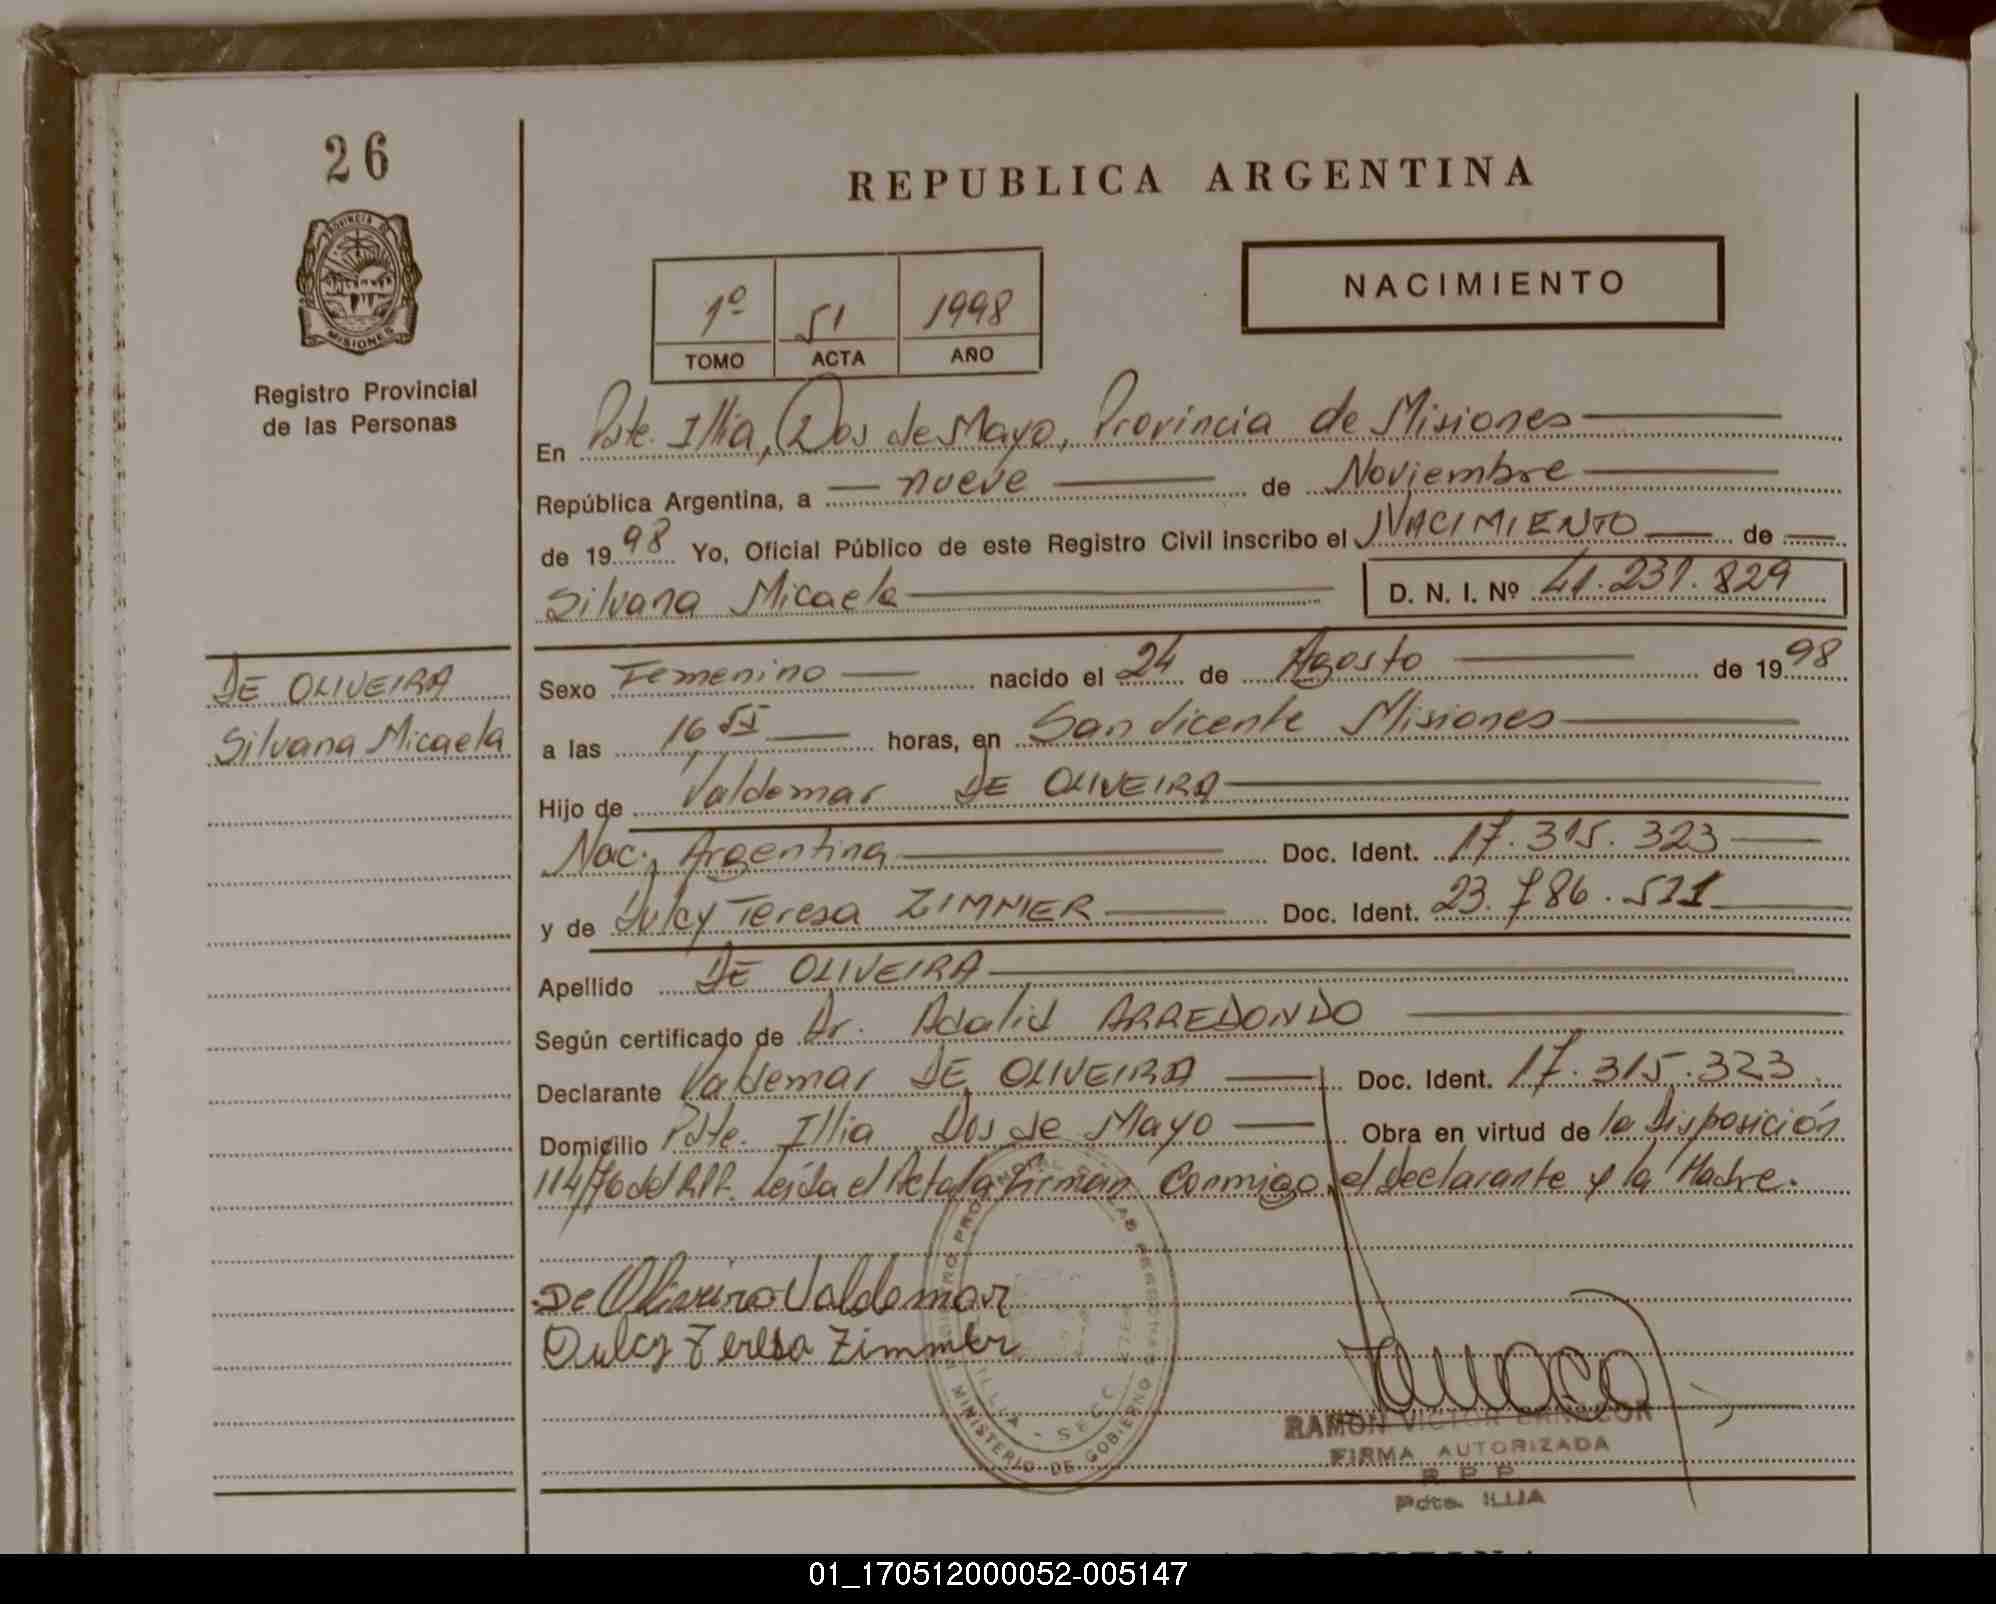 26
PROVINCIA DE
MISIONES
Registro Provincial
de las Personas
DE OLIVEIRA
Silvana Micaela
REPUBLICA ARGENTINA
1º 51 1998
TOMO ACTA AÑO
NACIMIENTO
En Pdte. Illia, Dos de Mayo, Provincia de Misiones
República Argentina, a nueve de Noviembre
de 1998 Yo, Oficial Público de este Registro Civil inscribo el NACIMIENTO de
Silvana Micaela D. N. I. Nº 41.231.829
Sexo Femenino nacido el 24 de Agosto de 1998
a las 16 55 horas, en San Vicente Misiones
Hijo de Valdemar DE OLIVEIRA
Nac. Argentina Doc. Ident. 17.315.323
y de Dulcy Teresa ZIMMER Doc. Ident. 23.786.521
Apellido DE OLIVEIRA
Según certificado de Dr. Adalid ARREDONDO
Declarante Valdemar DE OLIVEIRA Doc. Ident. 17.315.323
Domicilio Pdte. Illia Dos de Mayo Obra en virtud de la Disposición
114/76 del RPP. Leída el Acta la firman Conmigo, el declarante y la Madre.
De Oliveira Valdemar
Dulcy Teresa Zimmer
MINISTERIO DE GOBIERNO
ILLIA - SECC.
RAMON VICTOR
FIRMA AUTORIZADA
R P P
Pdte. ILLIA
01_170512000052-005147